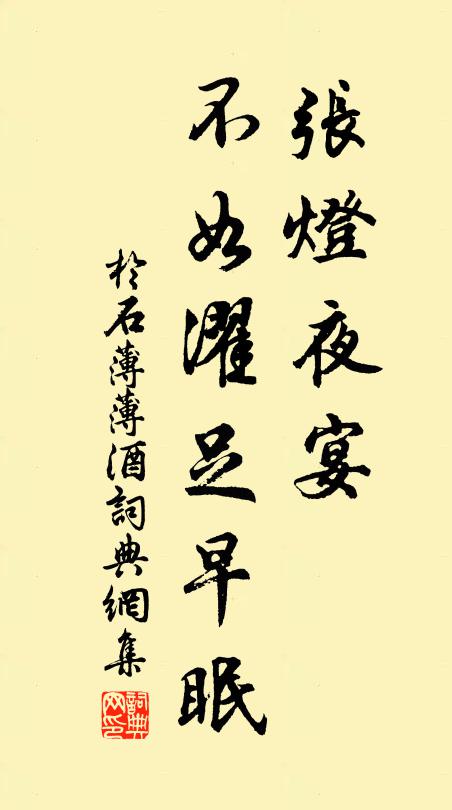 張燈夜宴
不如濯足早眠
於石薄薄酒詞典網集
詞典
网印